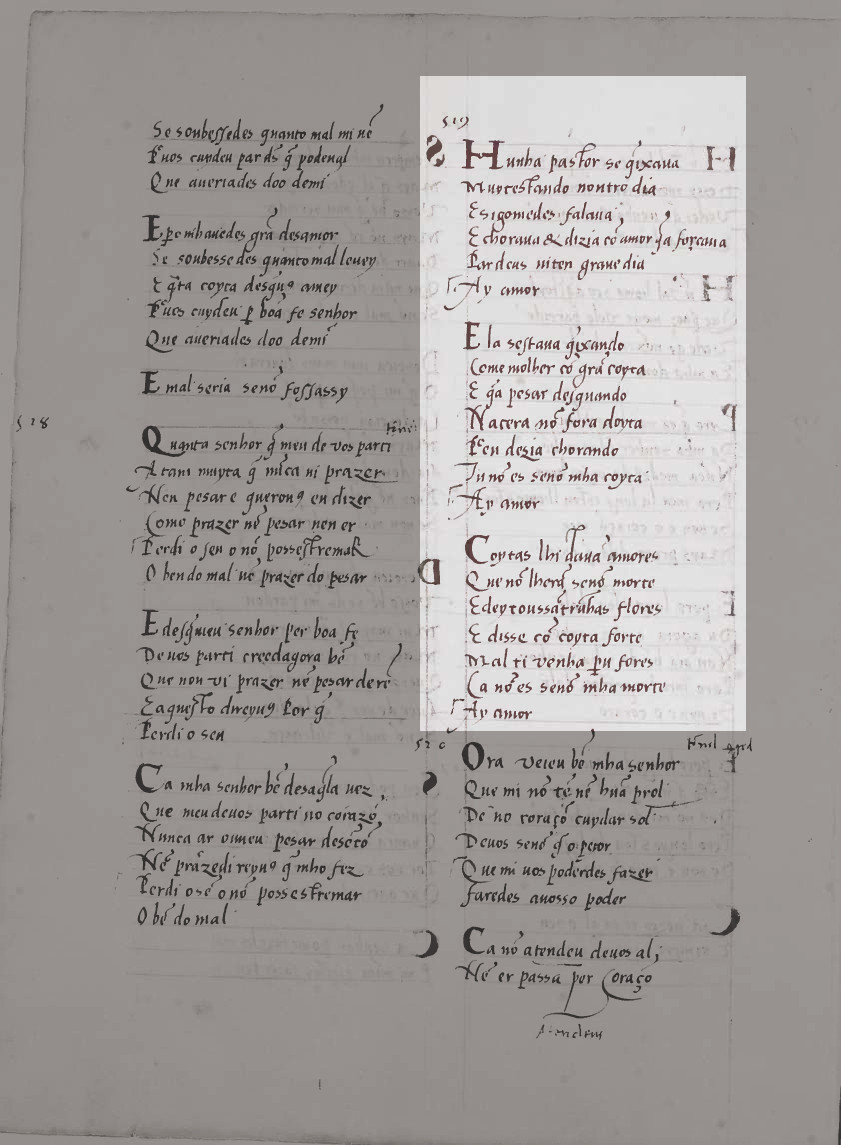 Se soubessedes quanto mal mi uẽ
Pˢuos cuydeu par dˢ q̃ podengl
Que aueriades doo demi
E ꝑo mhauedes grã desamor
Se soubessedes quanto mal leuey
E q̃ta coyta desqu9 amey
Pˢuos cuydeu ꝑ boã fe senhor
Que aueriades doo demi
E mal seria senõ fossassy
518
Quanta senhor q̃ meu de vos parti
Atam muyta q̃ nũca ui prazer
Nen pesar e queron9 eu dizer
Como prazer nẽ pesar nen er
Perdi o sen o nõ possestremar
O ben do mal nẽ prazer do pesar
E desq̃meu senhor per boa fe
De uos parti creedagora bẽ
Que non vi prazer nẽ pesar de rẽ
E aquesto direyu9 Por q̃
Perdi o sen
Ca mha senhor bẽ desaq̃la uez
Que meu deuos parti no corazõ
Nunca ar ouueu pesar desẽtõ
Nẽ prazer direyu9 q̃ mho fez
Perdi o sẽ o nõ possestremar
O bẽ do mal
519
Hunha pastor se q̃ixaua
Muyt estando noutro dia
E sigo medes falaua
E choraua & dizia cõ amor q̃a forçaua
Par deus uiten graue dia
Ay amor
Ela sestaua q̃ixando
Come molher cõ grã coyta
E q̃a pesar desquando
Nacera nõ fora doyta
Pˢeu dezia chorando
Tu nõ es senõ mha coyta
Ay amor
Coytas lhi dauã amores
Que nõ lherã senõ morte
E deytoussãtrũhas flores
E disse cõ coyta forte
Mal ti venha ꝑu fores
Ca nõ es senõ mha morte
Ay amor
520
Ora veieu bẽ mha senhor
Que mi nõ tẽ nẽ hũa prol
De no coraçõ cuydar sol
De uos senõ q̃ o peor
Que mi uos poderdes fazer
Faredes auosso poder
Ca nõ atendeu deuos al
Nẽ er passa per coraçõ